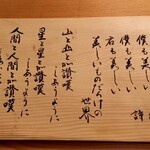 僕も美しい
君も美しい
美しいものだらけの
世界
山と山とが讃嘆
しあうように
星と星とが讃嘆
しあうように
人間と人間とが讃嘆